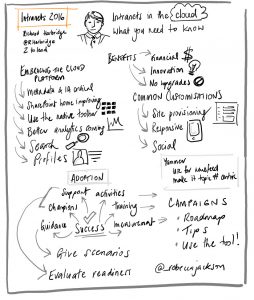 Intranets 2016
Richard Harbridge
@RHarbridge
2 to Lead
Intranets in the cloud
What you need to know
EMBRACING THE CLOUD
PLATFORM
Metadata & IA critical
Sharepoint home improving
Use the native toolbar
Better analytics coming
Search
Profiles
BENEFITS
Financial $
Innovation
No upgrades
COMMON CUSTOMISATIONS
Site provisioning
Responsive
Social
Yammer
Use for unwanted
make it topic centric
ADOPTION
Support activities
Champions
Training
Guidance
Success
Measurement
Give scenarios
Evaluate readiness
CAMPAIGNS
• Roadmap
• Tips
• Use the tool!
@rebeccajackson